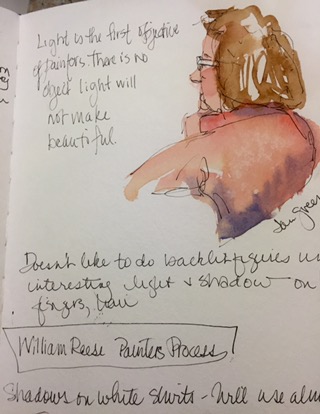 Light is the first objective
of painters. There is no
object light will
not make
beautiful.
Doesn't like to do backlit figures un
interesting light & shadow on
fingers, hair
William Reese Painters Process
Shadows on white shirts - Will use alm